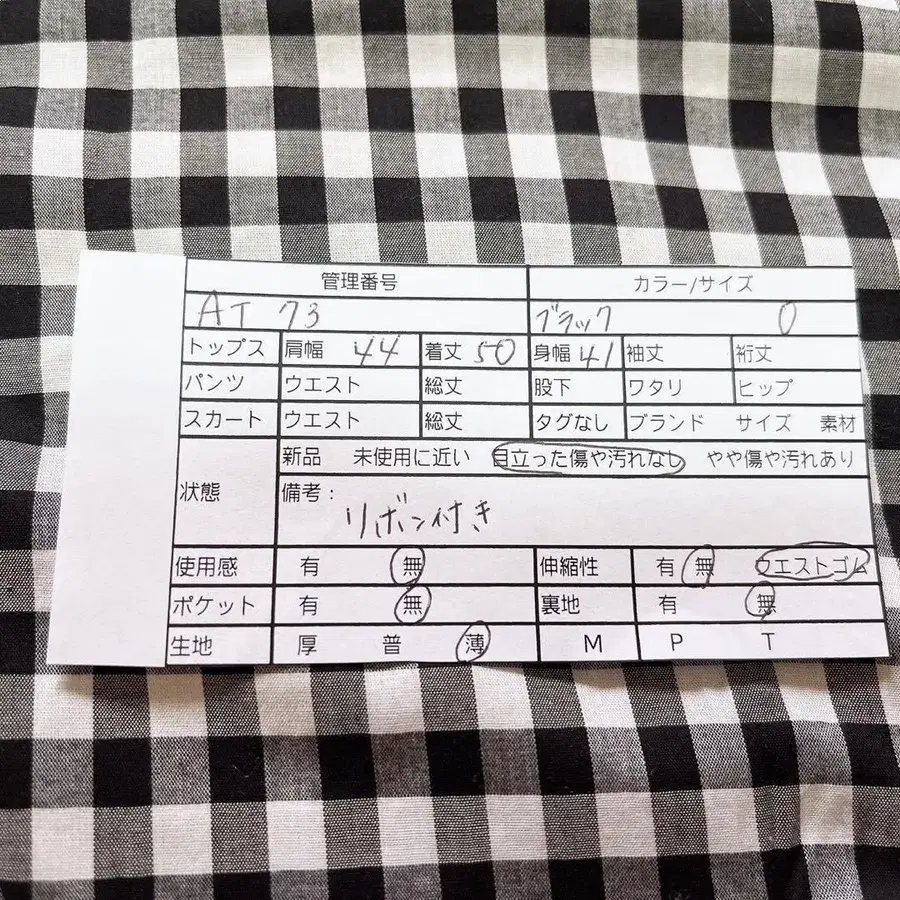 管理番号 カラー/サイズ
AT 73 ブラック 0
トップス 肩幅 44 着丈 50 身幅 41 袖丈 裄丈
パンツ ウエスト 総丈 股下 ワタリ ヒップ
スカート ウエスト 総丈 タグなし ブランド サイズ 素材
状態 新品 未使用に近い 目立った傷や汚れなし やや傷や汚れあり
備考：
リボン付き
使用感 有 無 伸縮性 有 無 ウエストゴム
ポケット 有 無 裏地 有 無
生地 厚 普 薄 M P T